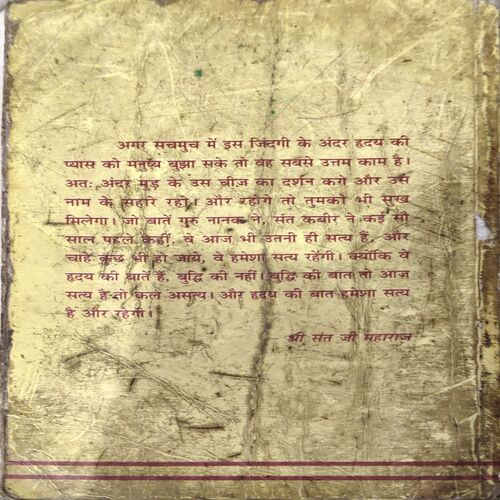 अगर सचमुच में इस जिंदगी के अंदर हृदय की
प्यास को मनुष्य बुझा सके तो वह सबसे उत्तम काम है।
अतः अंदर मुड़ के उस चीज़ का दर्शन करो और उस
नाम के सहारे रहो। और रहोगे तो तुमको भी सुख
मिलेगा। जो बातें गुरु नानक ने, संत कबीर ने कई सौ
साल पहले कहीं, वे आज भी उतनी ही सत्य हैं, और
चाहे कुछ भी हो जाये, वे हमेशा सत्य रहेंगी। क्योंकि वे
हृदय की बातें हैं, बुद्धि की नहीं। बुद्धि की बात तो आज
सत्य है तो कल असत्य। और हृदय की बात हमेशा सत्य
है और रहेगी।
श्री संत जी महाराज